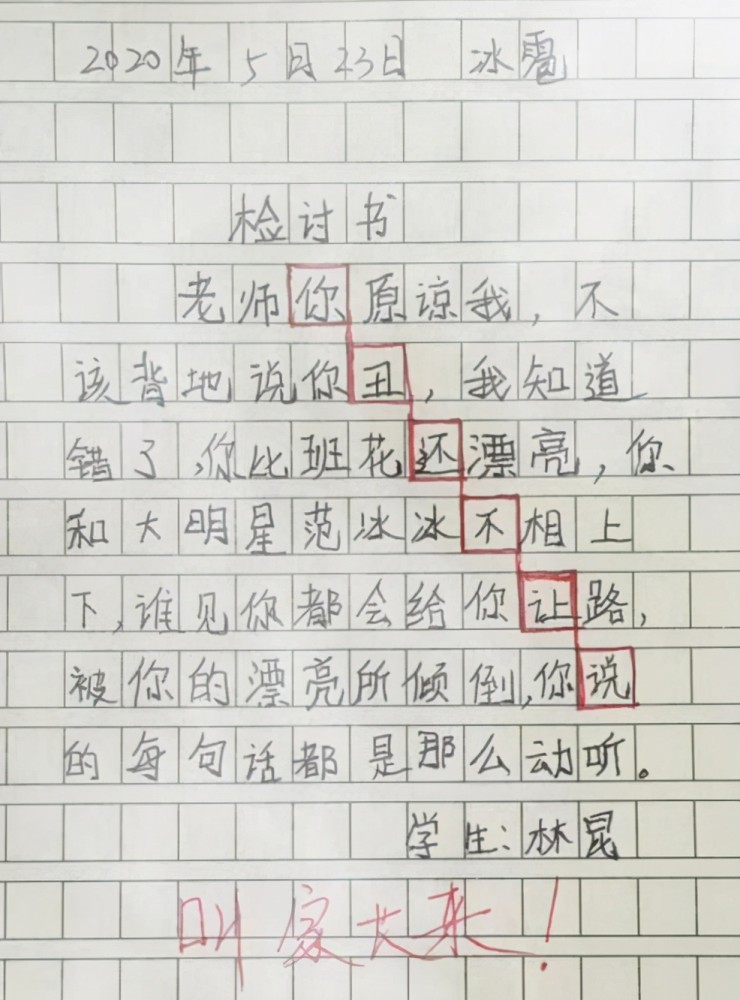 2020年5月23日 冰雹
检讨书
老师你原谅我，不
该背地说你丑，我知道
错了，你比班花还漂亮，你
和大明星范冰冰不相上
下，谁见你都会给你让路，
被你的漂亮所倾倒，你说
的每句话都是那么动听。
学生：林昆
叫家长来！